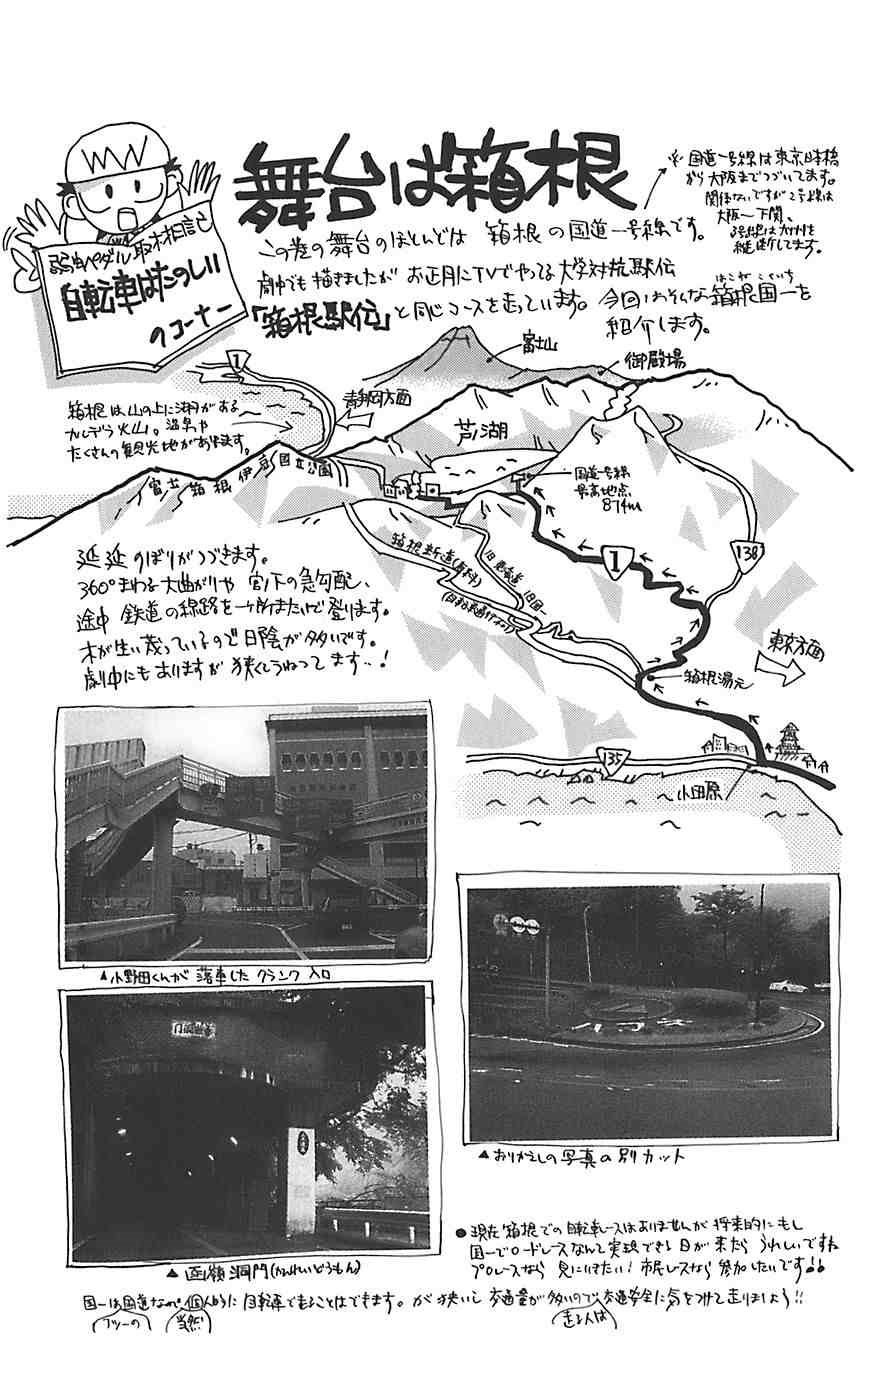 弱虫ペダル取材雑記
自転車はたのしい
のコーナー
舞台は箱根
※国道一号線は東京日本橋
から大阪までつづいてます。
関係ないですが2号線は
大阪〜下関、
3号線は九州を
縦断してます。
この巻の舞台のほとんどは 箱根の国道一号線です。
劇中でも描きましたが お正月にTVでやってる大学対抗駅伝
「箱根駅伝」と同じコースを走っています。今回はそんな箱根国一を
はこねこくいち
紹介します。
富士山
御殿場
1
静岡方面
箱根は山の上に湖がある
カルデラ火山。温泉や
たくさんの観光地があります。
芦ノ湖
富士箱根伊豆国立公園
国道一号線
最高地点
874m
箱根新道(有料)
旧東海道
旧国一
1
138
東京方面
箱根湯元
135
小田原
延延のぼりがつづきます。
360°まわる大曲がりや 宮ノ下の急勾配、
途中 鉄道の線路を一ヶ所またいで登ります。
木が生い茂っているので日陰が多いです。
劇中にもありますが 狭くてうねってます…!
▲小野田くんが 落車した クランク 入口
▲おりかえしの写真の別カット
▲函嶺洞門(かんれいどうもん)
●現在 箱根での自転車レースはありませんが 将来的にもし
国一でロードレースなんて実現できる日が来たら うれしいですね
プロレースなら 見に行きたい! 市民レースなら 参加したいです!!
国一は国道なので 個人的に 自転車で走ることはできます。が 狭いし 交通量が多いので 交通安全に気をつけて走りましょう!!
フツーの
当然
走る人は